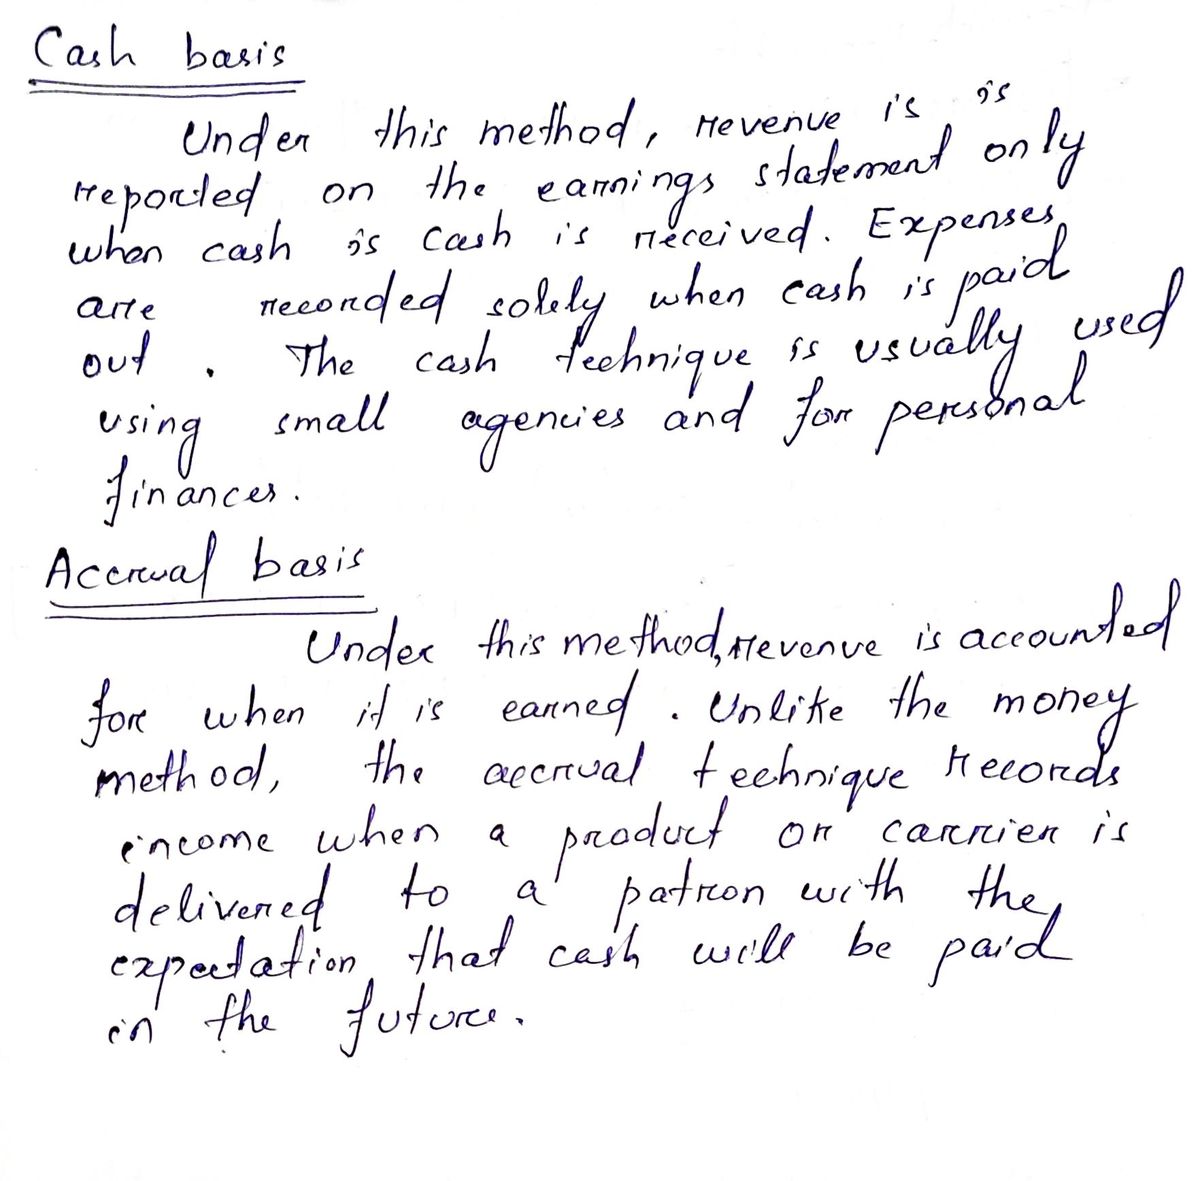 Cash basis
Under this method, revenue is is
reported on the earnings statement only
when cash is cash is received. Expenses
are recorded solely when cash is paid
out. The cash technique is usually used
using small agencies and for personal
finances.
Accrual basis
Under this method, revenue is accounted
for when it is earned. Unlike the money
method, the accrual technique records
income when a product or carrier is
delivered to a patron with the
expectation that cash will be paid
in the future.